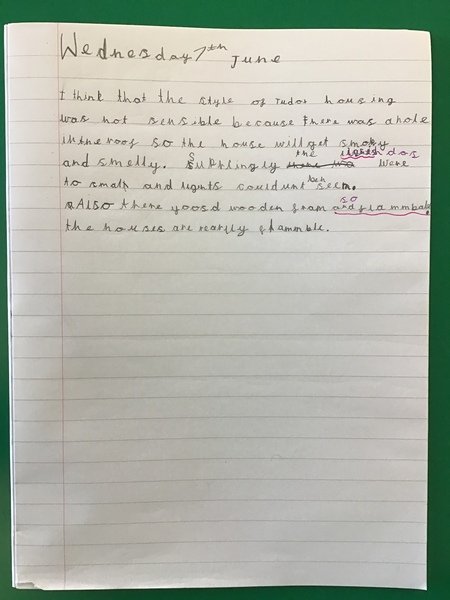 Wednesday 7th June
I think that the style of Tudor housing
was not sensible because there was ahole
inthe roof so the house will get smoky
and smelly. Surprlingly the dos were
to small and lights couldunt beh seem.
Also there yoosd wooden fram so
the houses are rearlly flammble.